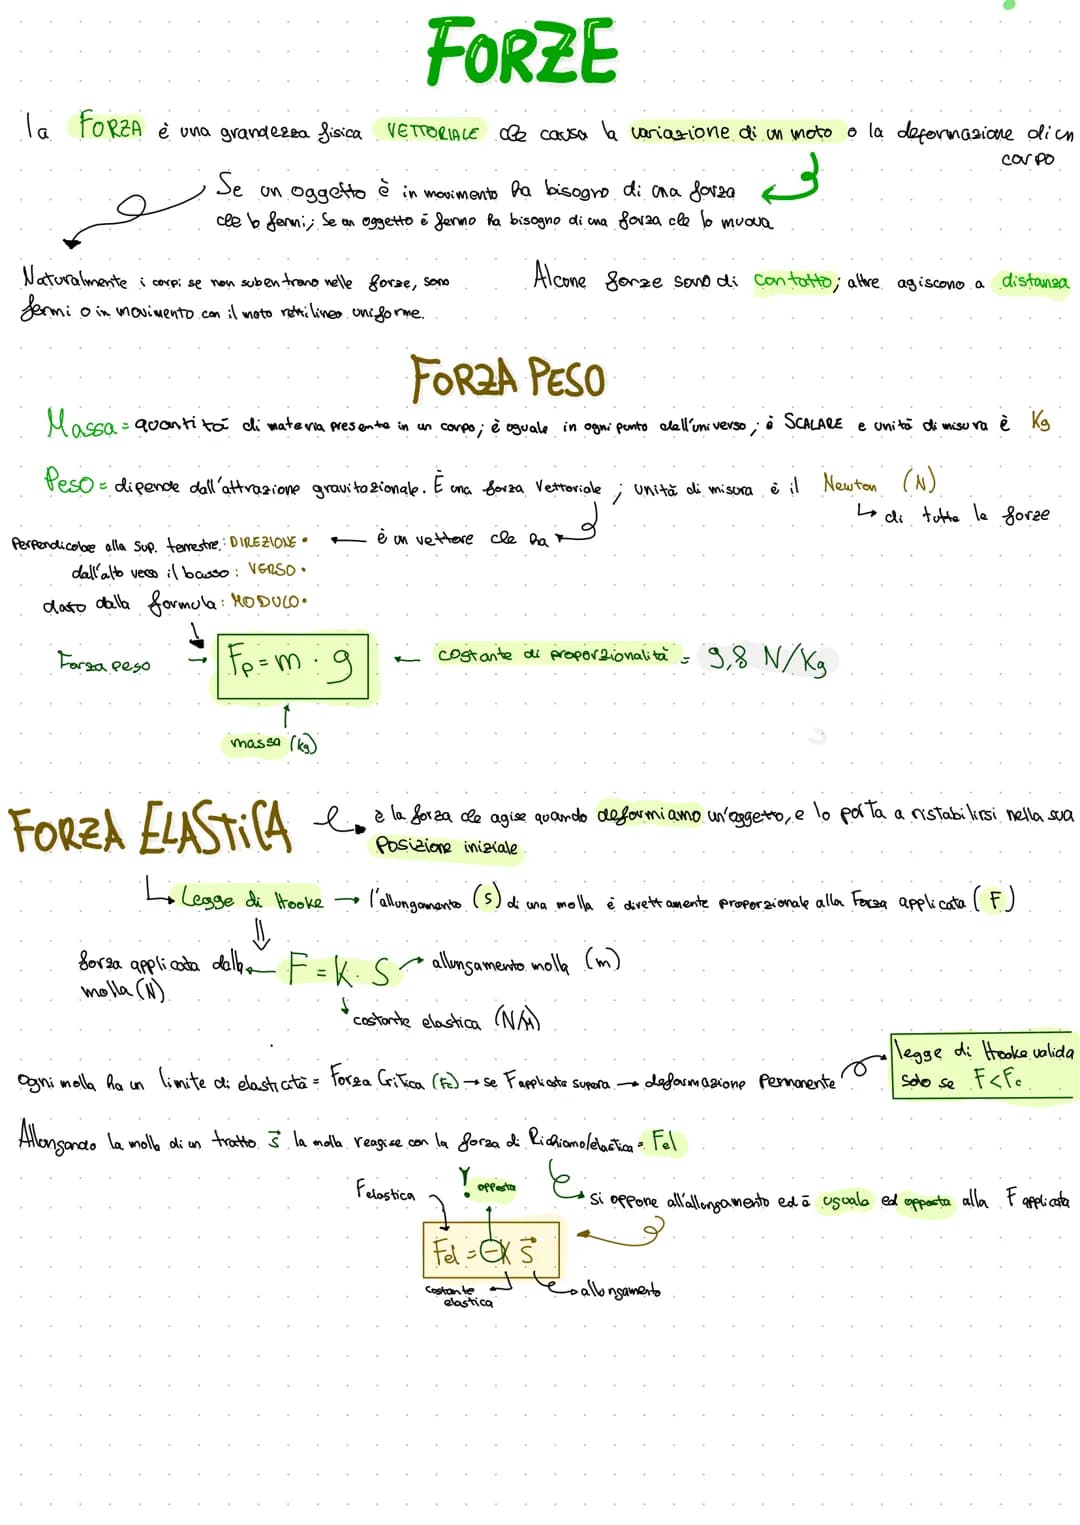 FORZE
la FORZA è una grandezza fisica VETTORIALE che causa la variazione di un moto o la deformazione di un
corpo
Se un oggetto è in movimento ha bisogno di una forza
che lo fermi; Se un oggetto è fermo ha bisogno di una forza che lo muova
Naturalmente i corpi se non subentrano nelle forze, sono
fermi o in movimento con il moto rettilineo uniforme.
Alcune forze sono di contatto; altre agiscono a distanza
FORZA PESO
Massa = quantità di materia presente in un corpo; è uguale in ogni punto dell'universo; è SCALARE e unità di misura è Kg
Peso = dipende dall'attrazione gravitazionale. È una forza Vettoriale ; unità di misura è il Newton (N)
↳ di tutte le forze
è un vettore che ha
Perpendicolare alla Sup. terrestre: DIREZIONE •
dall'alto verso il basso: VERSO •
dato dalla formula: MODULO •
Forza peso → Fp = m · g ← costante di proporzionalità = 9,8 N/Kg
massa (kg)
FORZA ELASTICA
è la forza che agisce quando deformiamo un'oggetto, e lo porta a ristabilirsi nella sua
Posizione iniziale
Legge di Hooke → l'allungamento (s) di una molla è direttamente proporzionale alla Forza applicata (F)
forza applicata dalla
molla (N)
F = K · S
allungamento molla (m)
costante elastica (N/M)
legge di Hooke valida
solo se F<Fc
Ogni molla ha un limite di elasticità = Forza Critica (Fc) → se F applicata supera → deformazione Permanente
Allungando la molla di un tratto s⃗ la molla reagisce con la forza di Richiamo/elastica = Fel
si oppone all'allungamento ed è uguale ed opposta alla F applicata
Felastica
! opposta
Fel = -K s⃗
costante
elastica
allungamento